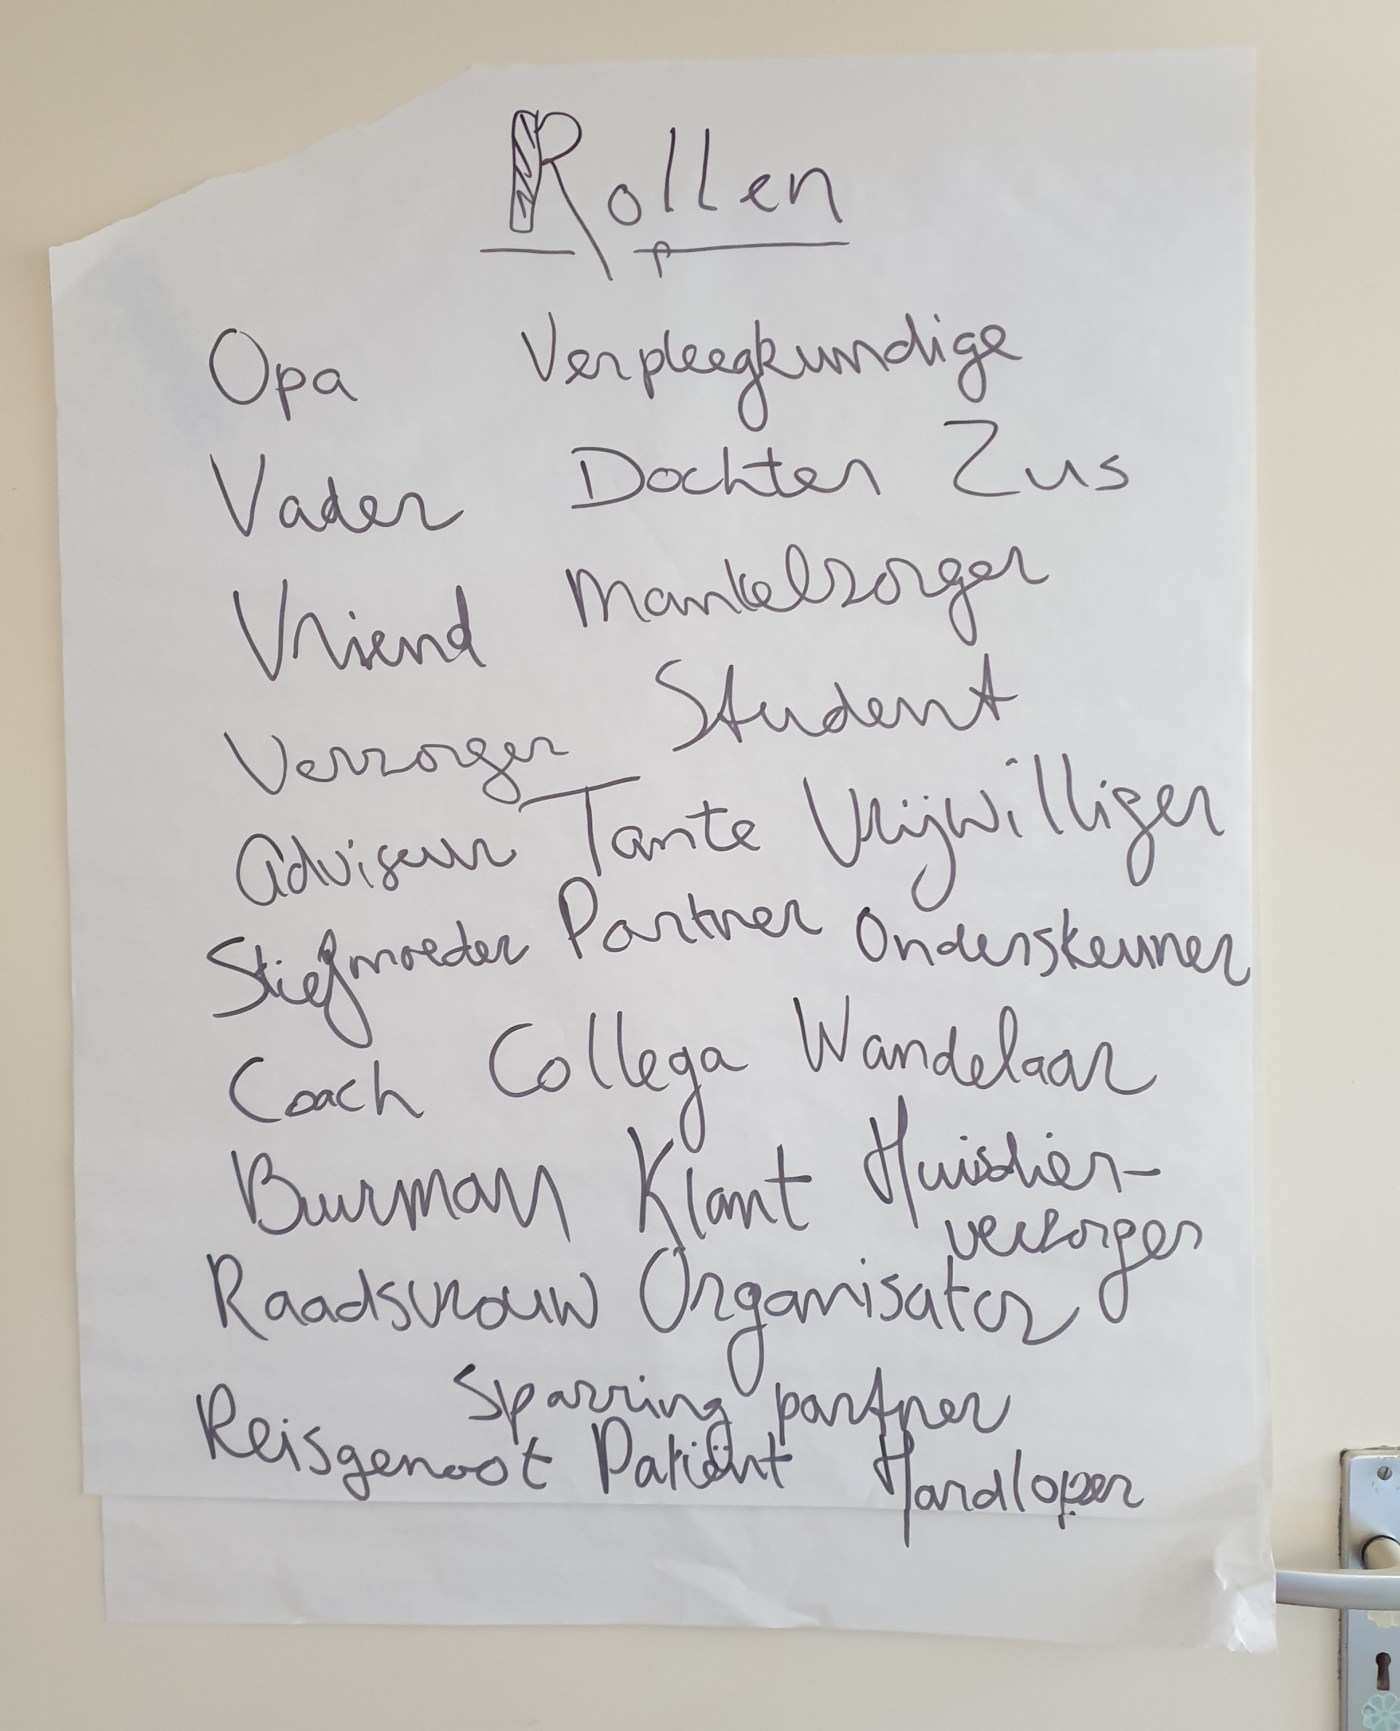 Rollen
Opa Verpleegkundige
Vader Dochter Zus
Vriend Mantelzorger
Verzorger Student
Adviseur Tante Vrijwilliger
Stiefmoeder Partner Ondersteuner
Coach Collega Wandelaar
Buurman Klant Huisdier-
verzorger
Raadsvrouw Organisator
Sparring partner
Reisgenoot Patiënt Hardloper